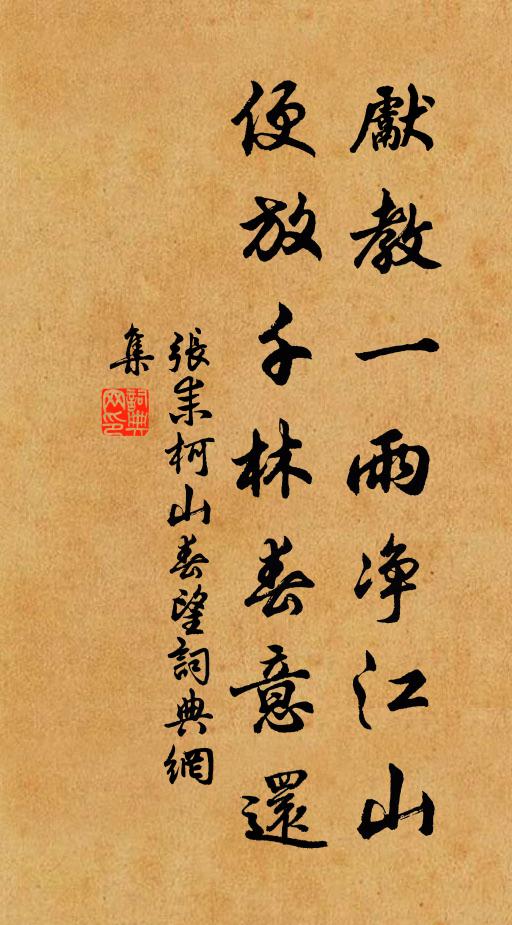 獻教一雨净江山
便放千林春意還
張耒柯山春望詞典網
集
詞典
网印